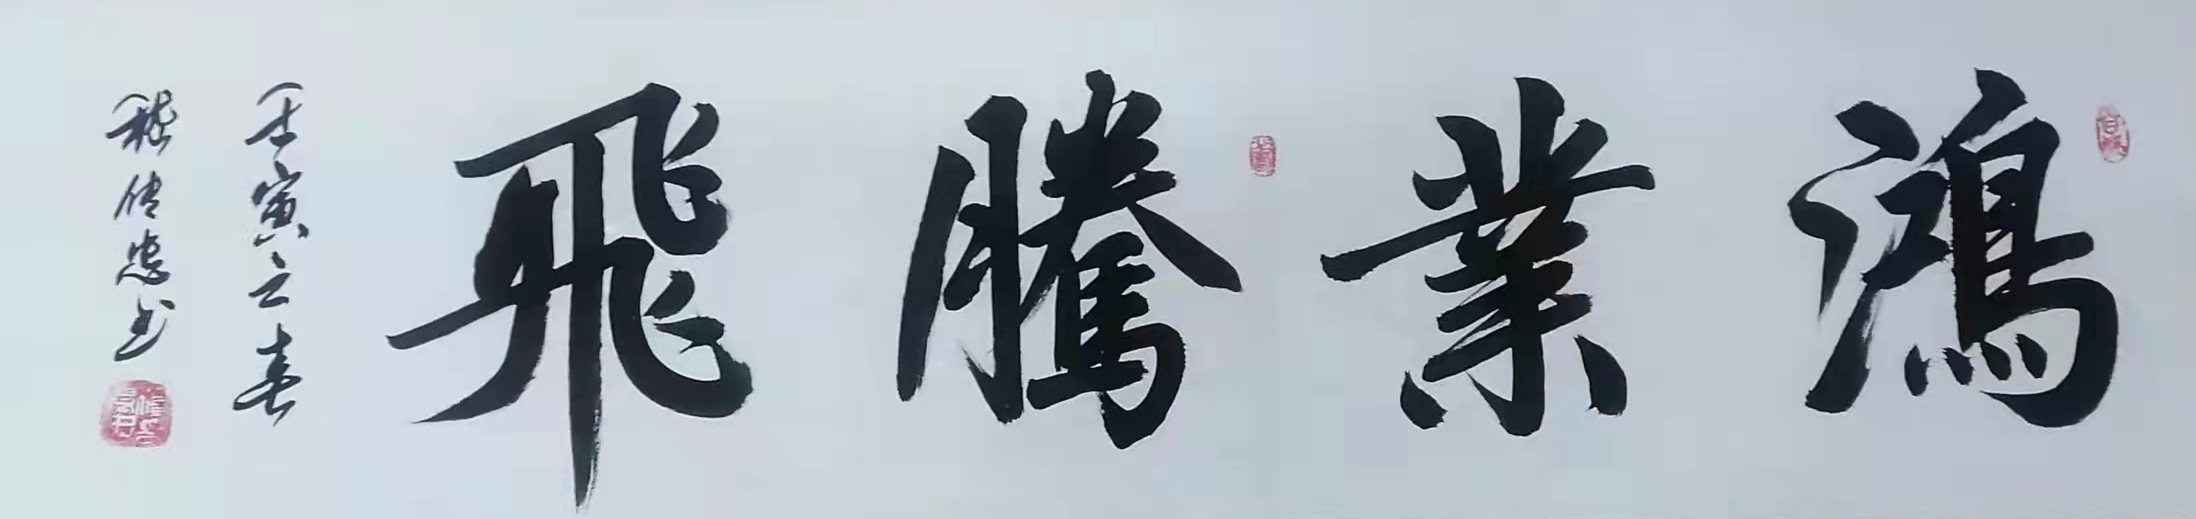 鴻業騰飛
壬寅之春
嵇傳忠书